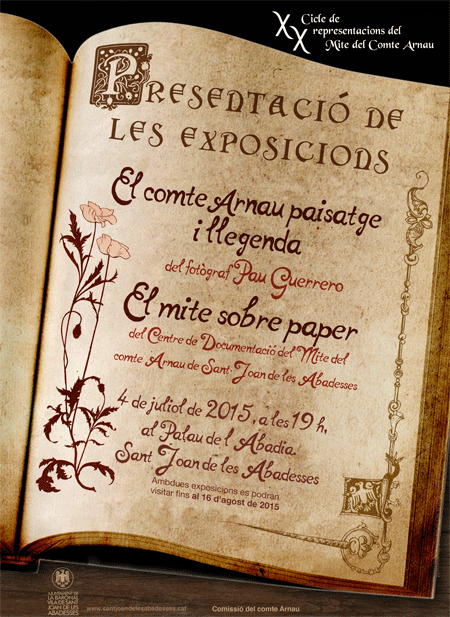 XX
Cicle de
representacions del
Mite del Comte Arnau
PRESENTACIÓ DE
LES EXPOSICIONS
El comte Arnau paisatge
i llegenda
del fotògraf Pau Guerrero
El mite sobre paper
del Centre de Documentació del Mite del
comte Arnau de Sant Joan de les Abadesses
4 de juliol de 2015, a les 19 h,
al Palau de l'Abadia.
Sant Joan de les Abadesses
Ambdues exposicions es podran
visitar fins al 16 d'agost de 2015
AJUNTAMENT DE
LA BARONIAL
VILA DE SANT
JOAN DE LES
ABADESSES
www.santjoandelesabadesses.cat
Comissió del comte Arnau